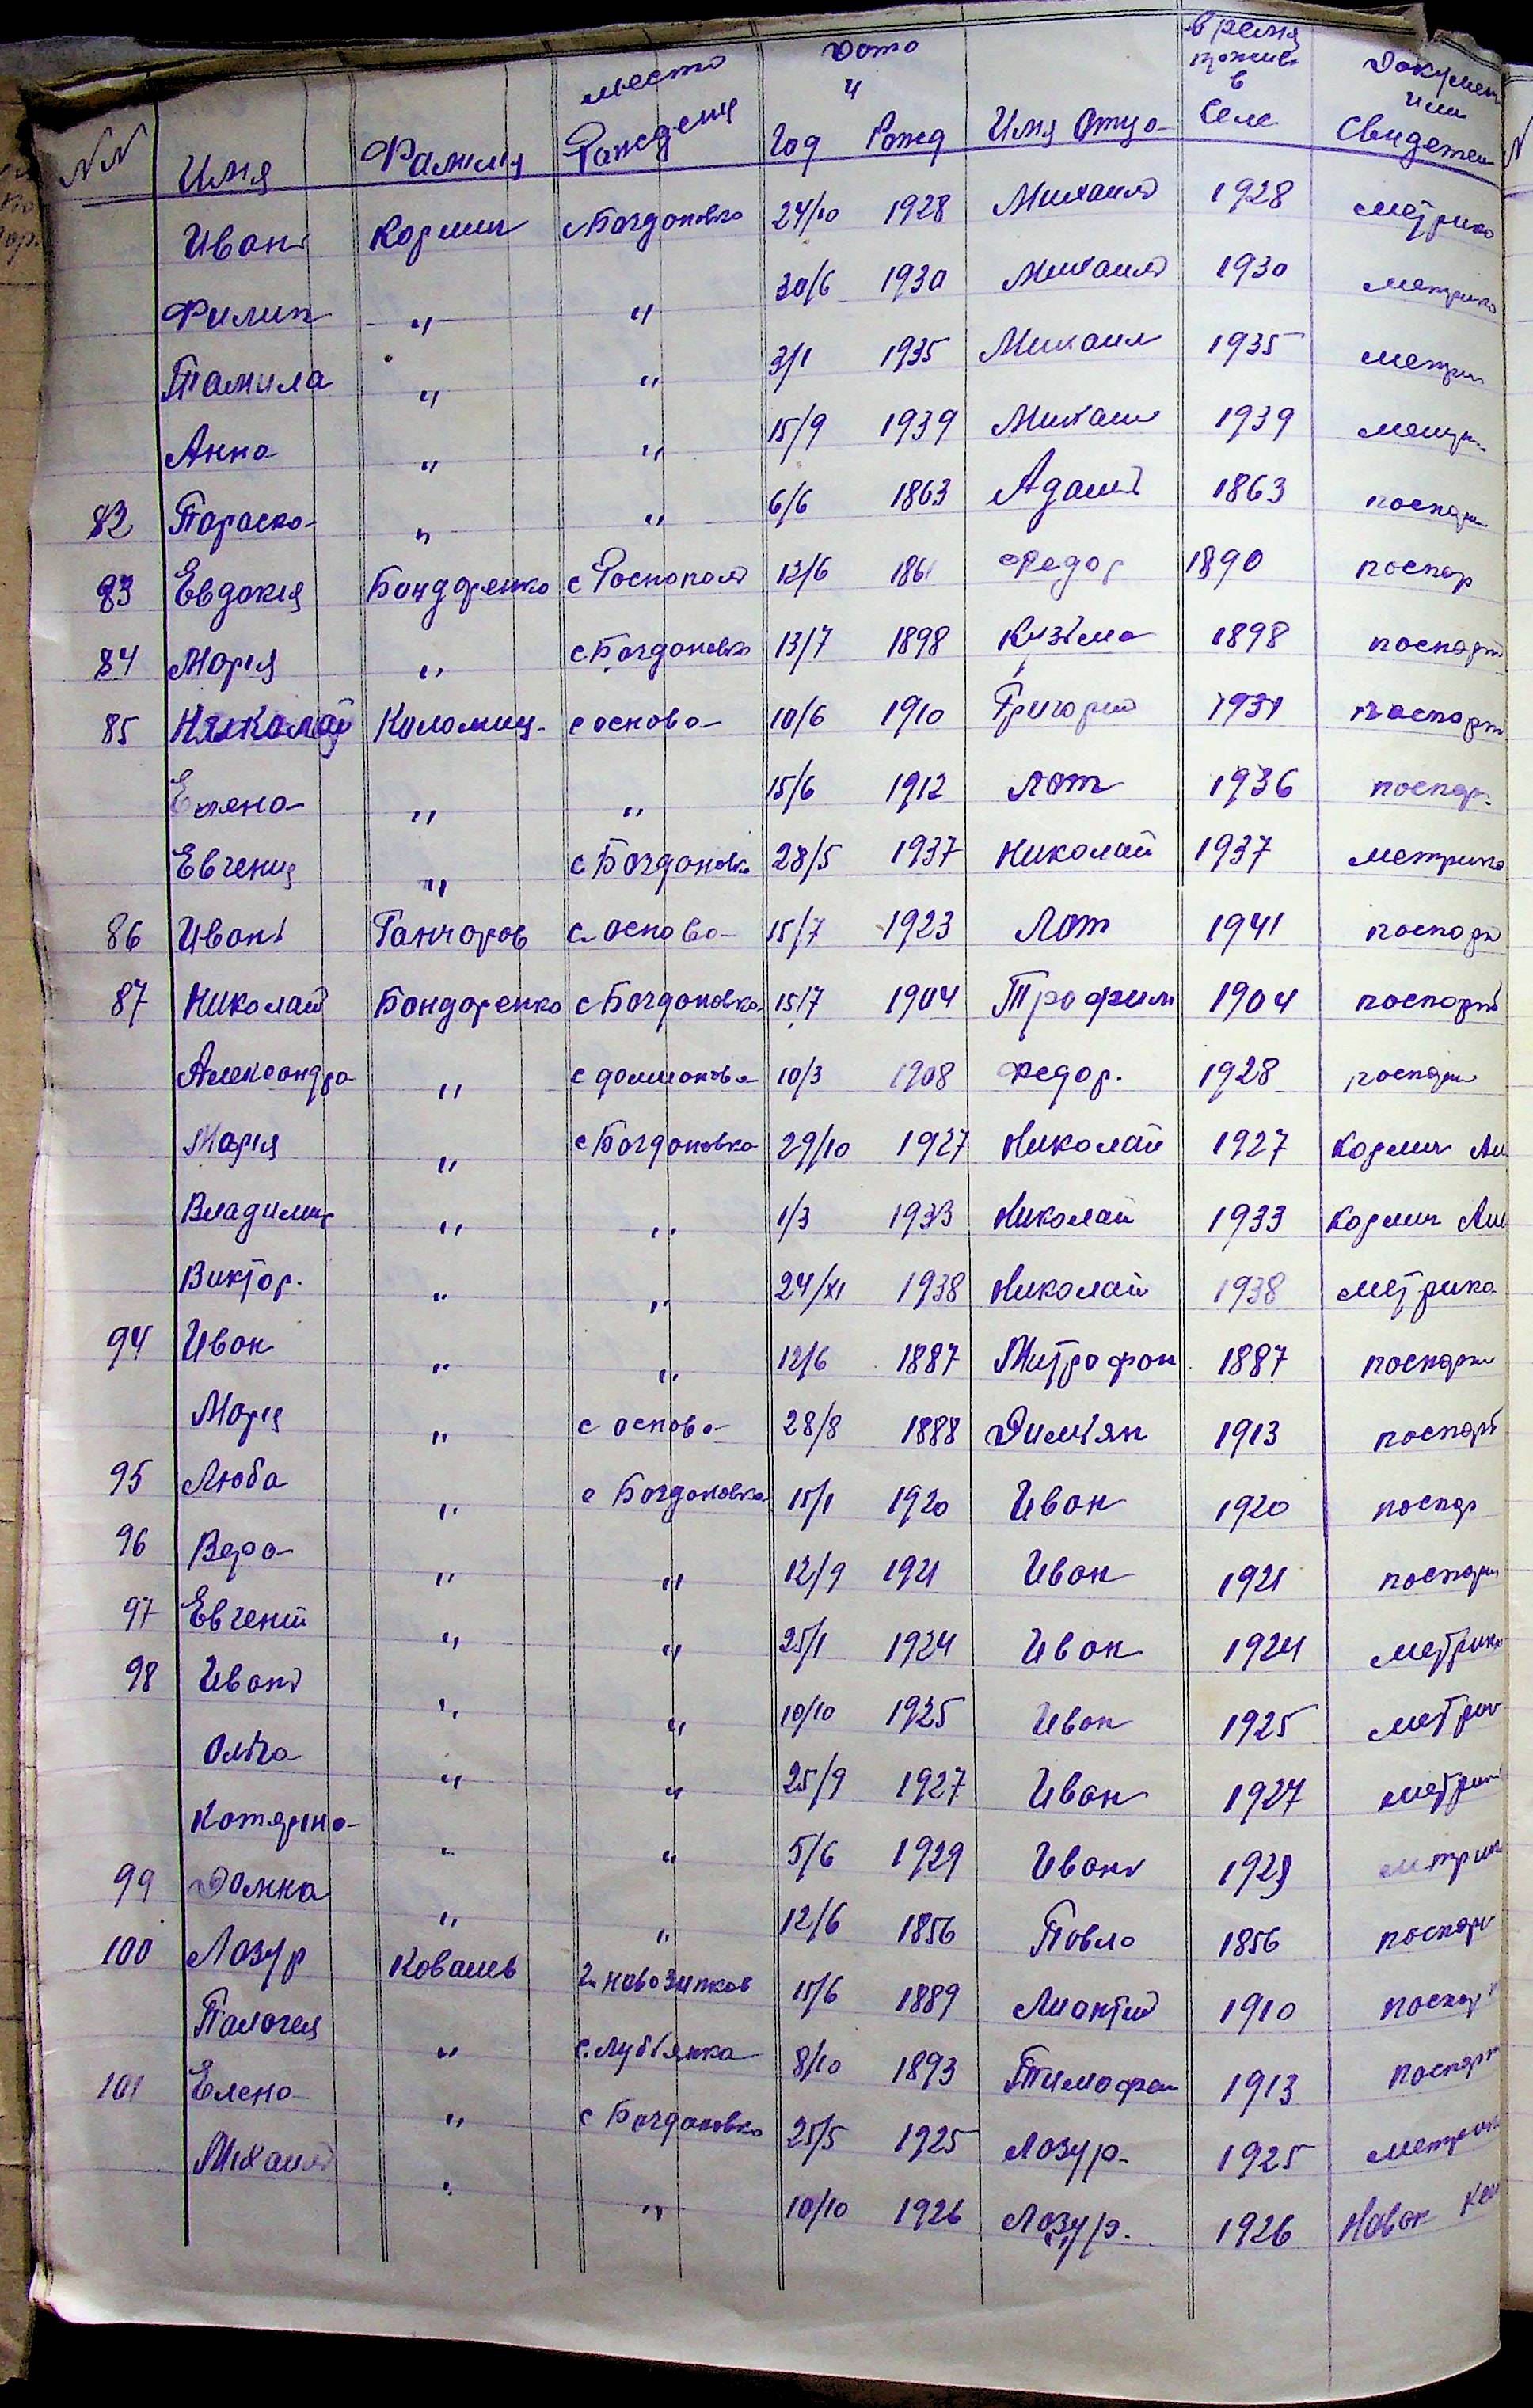 NN Имя Фамилия место Рождения Дата и Год Рожд Имя Отца время прожив. в Селе Документ или Свидетел
Иван Кормич с Богдановка 24/10 1928 Михаил 1928 метрика
Филип " " 30/6 1930 Михаил 1930 метрика
Тамила " " 3/1 1935 Михаил 1935 метри
Анна " " 15/9 1939 Михаил 1939 метри
82 Параска " " 6/6 1863 Адам 1863 паспор
83 Евдокия Бондаренко с 13/6 186 Федор 1890 паспор
84 Мария " с Богдановка 13/7 1898 Кузьма 1898 паспорт
85 Николай Коломиц с основа 10/6 1910 Григорий 1931 паспорт
Елена " " 15/6 1912 Лот 1936 паспор.
Евгения " с Богдановк 28/5 1937 Николай 1937 метрика
86 Иван Ганчаров с основа 15/7 1923 Лот 1941 паспорт
87 Николай Бондаренко с Богдановка 15/7 1904 Трофим 1904 паспорт
Александра " с 10/3 1908 Федор. 1928 паспорт
Мария " с Богдановка 29/10 1927 Николай 1927 Кормич Ан
Владимир " " 1/3 1933 Николай 1933 Кормич Ан
Виктор. " " 24/XI 1938 Николай 1938 метрика
94 Иван " " 12/6 1887 Митрофан 1887 паспорт
Мария " с основа 28/8 1888 Димьян 1913 паспорт
95 Люба " с Богдановка 15/1 1920 Иван 1920 паспор
96 Вера " " 12/9 1921 Иван 1921 паспорт
97 Евгений " " 25/1 1924 Иван 1924 метрика
98 Иван " " 10/10 1925 Иван 1925 метрик
Ольга " " 25/9 1927 Иван 1927 метрик
Катярина " " 5/6 1929 Иван 1929 метрик
99 Домка " " 12/6 1856 Павло 1856 паспорт
100 Лазур Ковалев г. новозипков 15/6 1889 Лионтий 1910 паспор
Палагея " с. Лубьянка 8/10 1893 Тимофеи 1913 паспорт
101 Елена " с Богдановка 25/5 1925 Лазур. 1925 метрик
Михаил " " 10/10 1926 Лазур. 1926 Новак